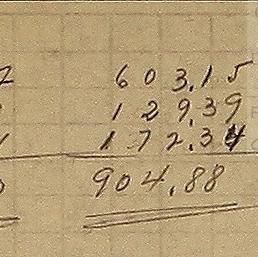 603.15
129.39
172.34
904.88